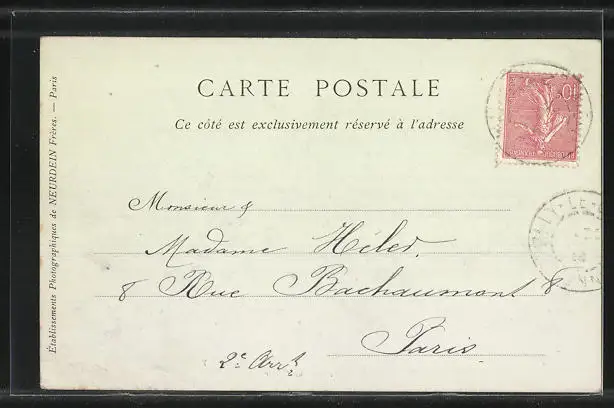 CARTE POSTALE
Ce côté est exclusivement réservé à l'adresse
Monsieur &
Madame Héler
8 Rue Bachaumont 8
Paris
2e Arrt
Établissements Photographiques de NEURDEIN Frères. — Paris
10
LY-LE-